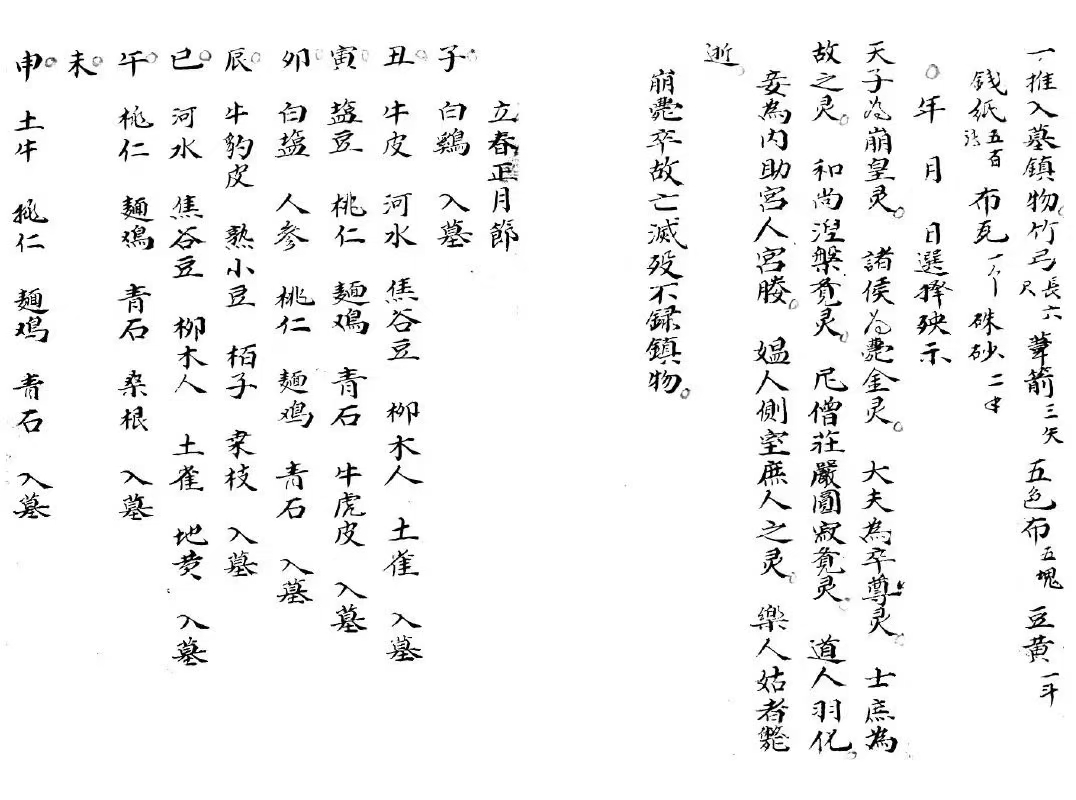 一推入墓鎮物。竹弓長六尺 葦箭三矢 五色布五塊 豆黄一斗
錢紙五百張 布瓦一个 硃砂二
〇年 月 日選擇殃示
天子為崩皇灵。 諸侯为薨金灵。 大夫為卒尊灵。 士庶為
故之灵。 和尚涅槃覔灵。 尼僧莊嚴圓寂覔灵。 道人羽化。
妾為内助宮人宮媵。 媪人側室庶人之灵。 樂人姑者
逝。
崩薨卒故亡滅殁不録鎮物。
立春正月節
子。 白鷄 入墓
丑。 牛皮 河水 焦谷豆 柳木人 土雀 入墓
寅。 盐豆 桃仁 麺鸡 青石 牛虎皮 入墓
卯。 白盐 人参 桃仁 麺鸡 青石 入墓
辰。 牛豹皮 熟小豆 栢子 桒枝 入墓
巳。 河水 焦谷豆 柳木人 土雀 地黄 入墓
午。 桃仁 麺鸡 青石 桑根 入墓
未。
申。 土牛 桃仁 麺鸡 青石 入墓